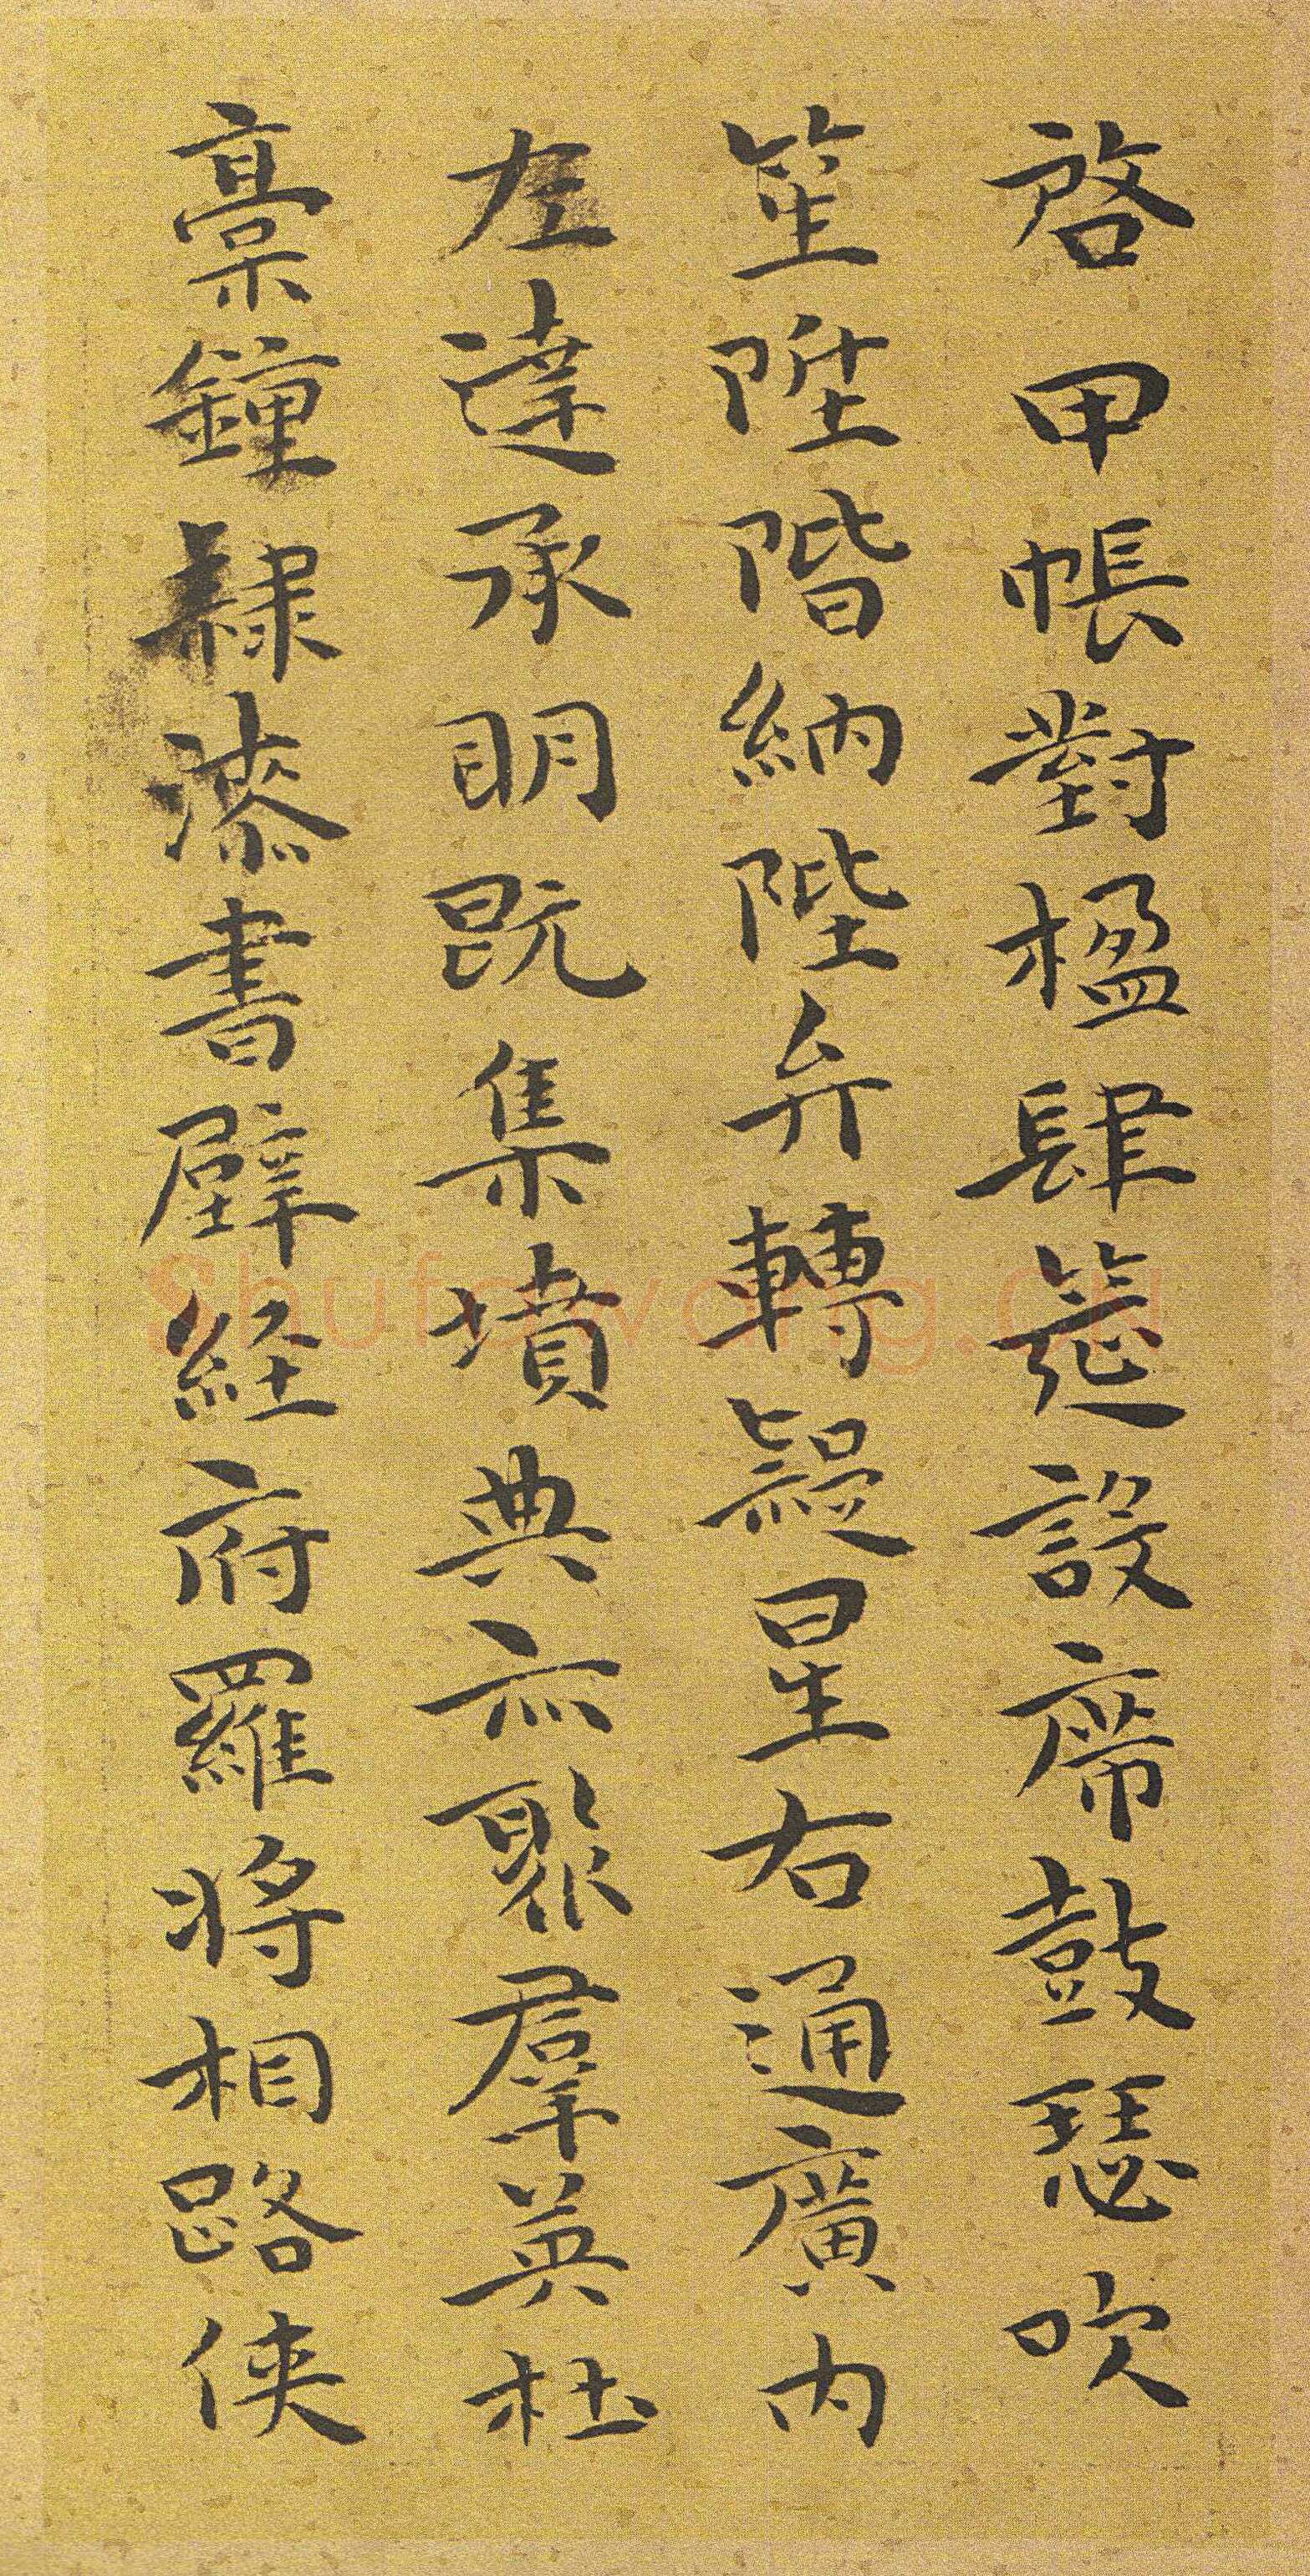 啓甲帳對楹肆筵設席鼓瑟吹
笙陞階納陛弁轉疑星右通廣内
左達承明既集墳典亦聚群英杜
稾鍾隸漆書壁経府羅将相路俠
Shufawang.CN